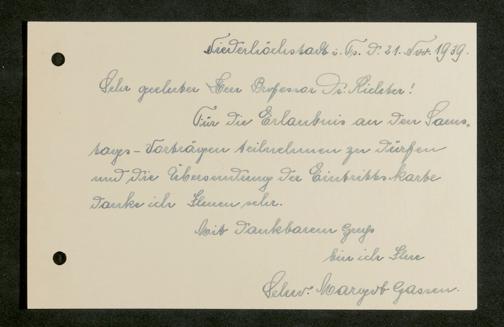 Niederhöchstadt i. Ts. d. 21. Nov. 1939.
Sehr geehrter Herr Professor Dr. Richter!
Für die Erlaubnis an den Sams-
tags-Vorträgen teilnehmen zu dürfen
und die Übersendung der Eintrittskarte
danke ich Ihnen sehr.
Mit dankbarem Gruß
bin ich Ihre
Schw. Margot Gassen.